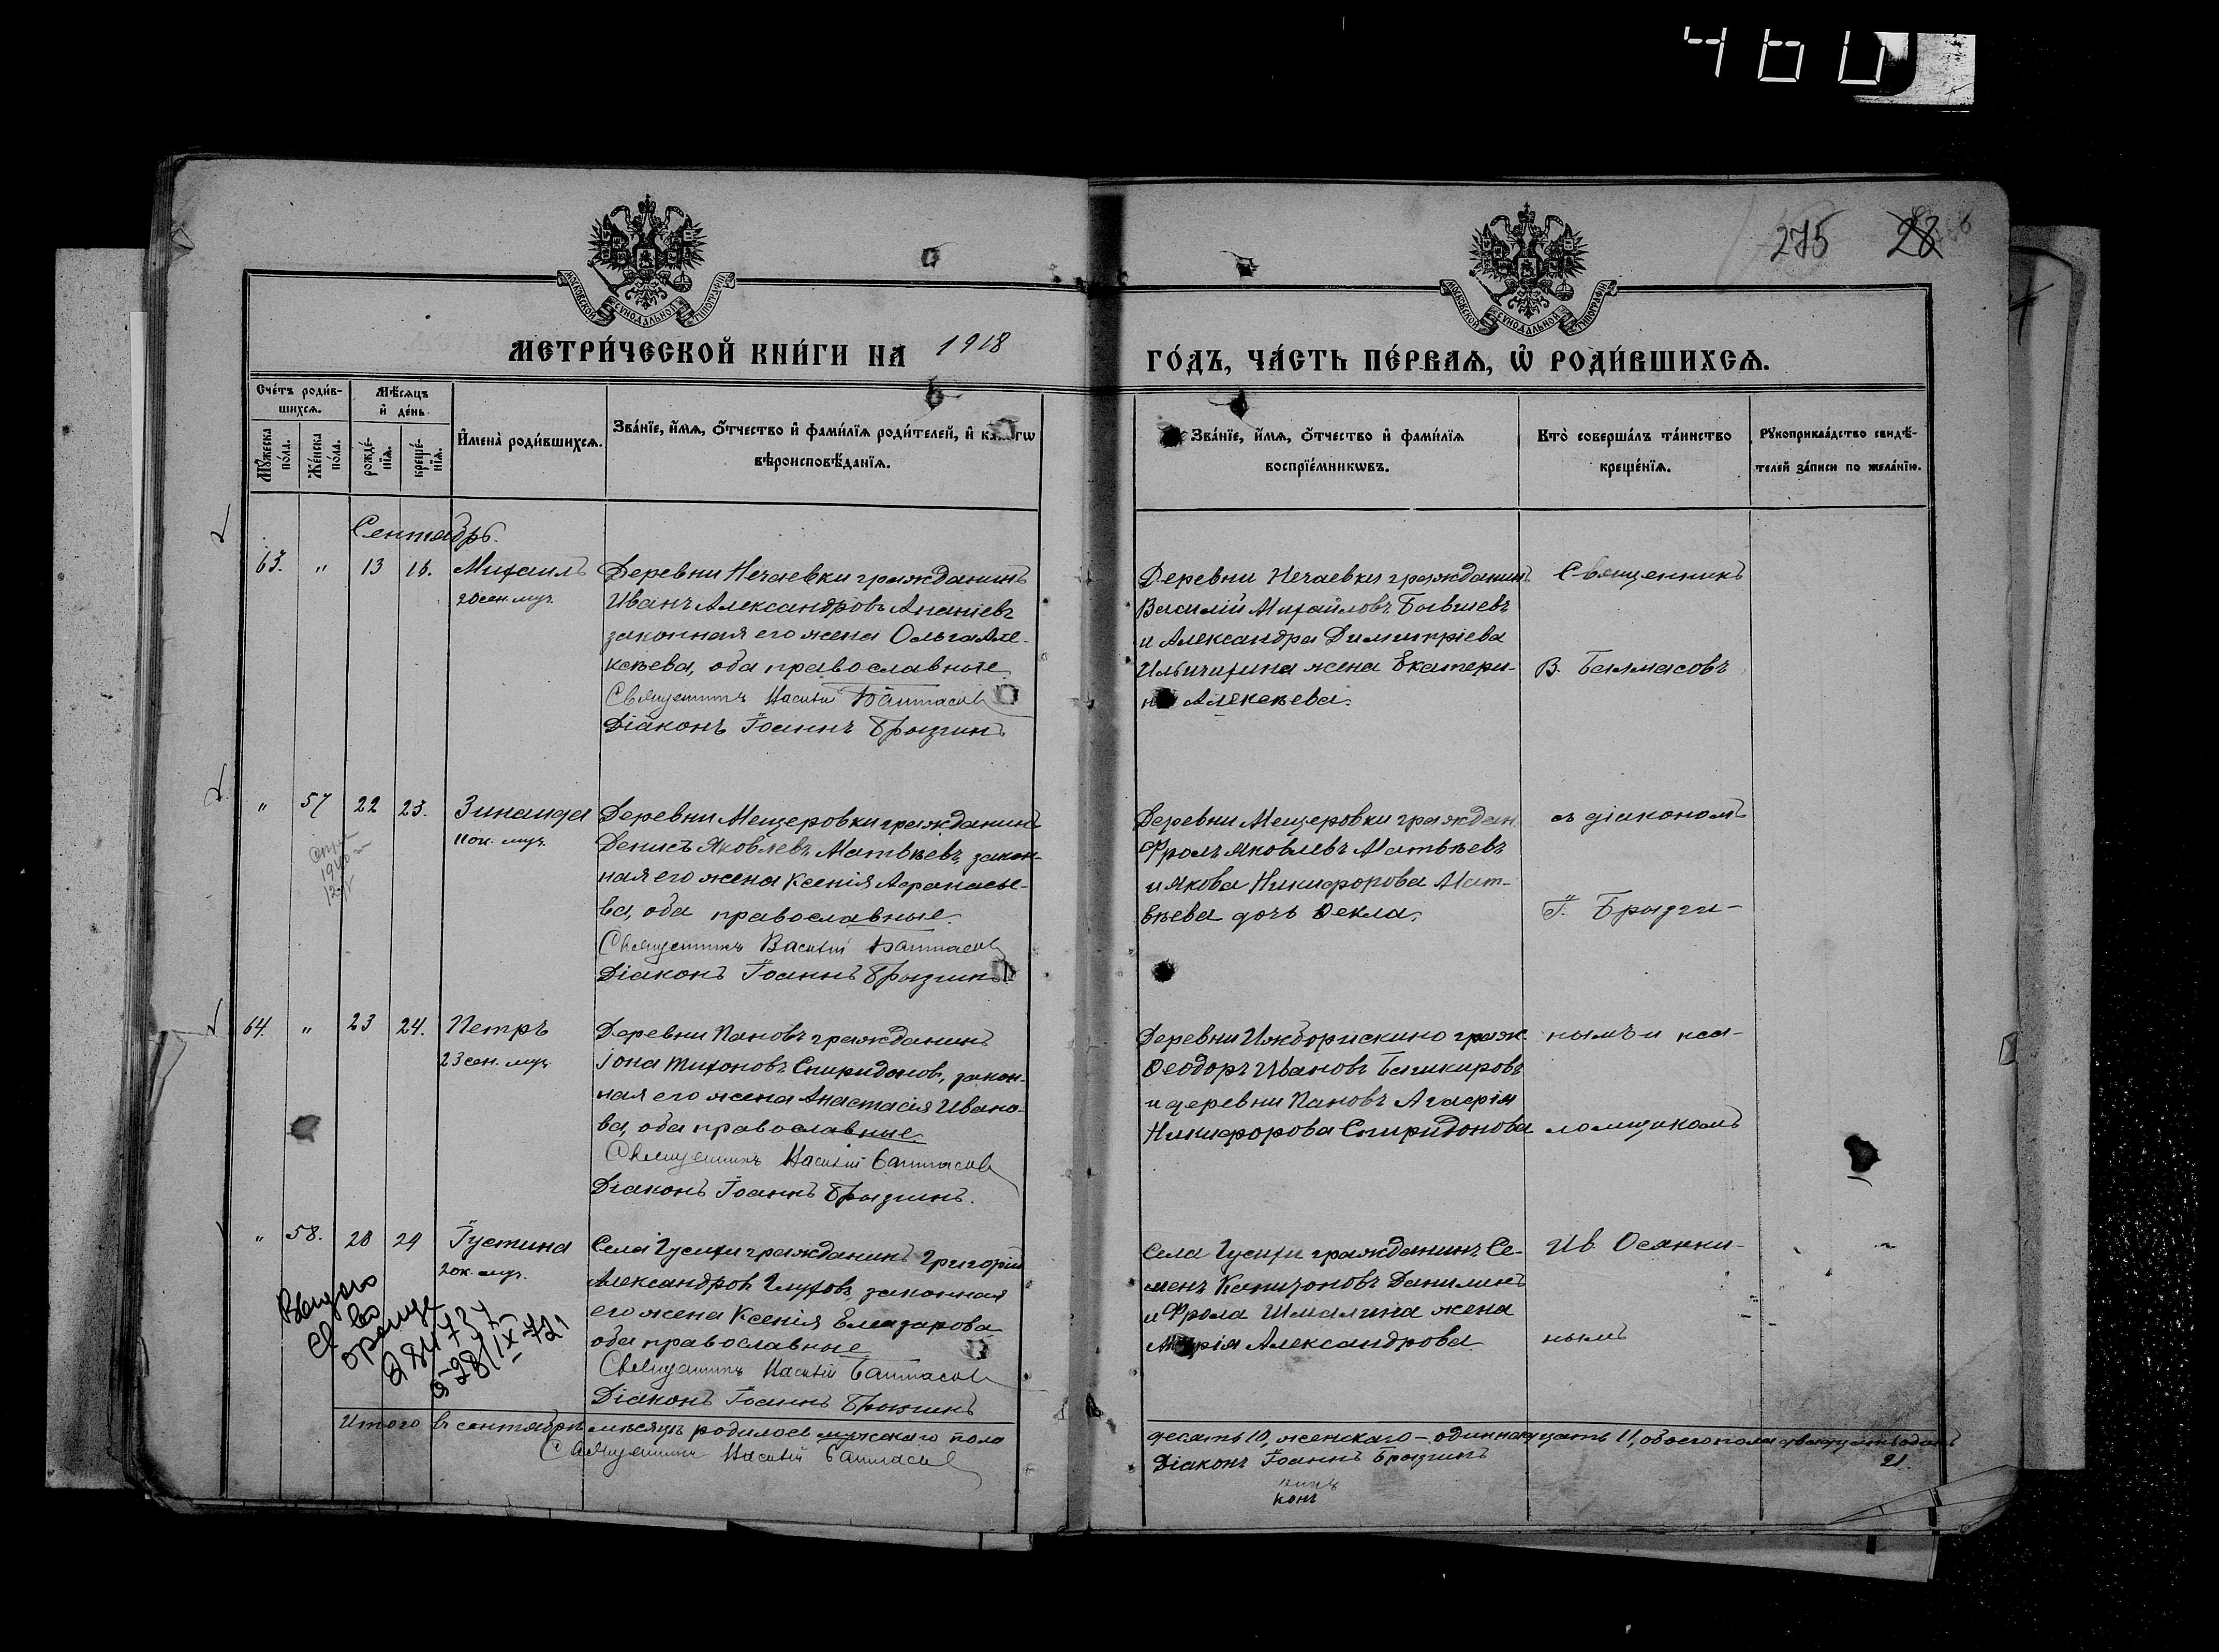 460
МОСКОВСКОЙ СѴНОДАЛЬНОЙ ТИПОГРАФІИ
МОСКОВСКОЙ СѴНОДАЛЬНОЙ ТИПОГРАФІИ
275 28
МЕТРИ́ЧЕСКОЙ КНИ́ГИ НА 1918
ГО́ДЪ, ЧА́СТЬ ПЕ́РВАѦ, Ѡ҆ РОДИ́ВШИХСѦ.
Сче́тъ роди́в-
шихсѧ.
Мꙋ́жеска
по́ла.
Же́нска
по́ла.
Мѣ́сѧцъ
и҆ де́нь
рожде́-
нїѧ.
креще́-
нїѧ.
И҆мена̀ роди́вшихсѧ.
Зва́нїе, и҆́мѧ, ѻ҆́тчество и҆ фами́лїѧ роди́телей, и҆ како́гѡ
вѣроисповѣ́данїѧ.
Зва́нїе, и҆́мѧ, ѻ҆́тчество и҆ фами́лїѧ
воспрїе́мникѡвъ.
Кто̀ соверша́лъ та́инство
креще́нїѧ.
Рꙋкоприкла́дство свидѣ́-
телей за́писи по жела́нїю.
Сентябрь.
63. " 13 16. Михаилъ
20 сен. муч.
Деревни Нечаевки гражданинъ
Иванъ Александровъ Ананіевъ
законная его жена Ольга Але-
ксѣева, оба православные.
Священникъ Василій Балмасовъ
Діаконъ Іоаннъ Брызгинъ
Деревни Нечаевки гражданинъ
Василій Михайловъ
и Александра Димитріева
жена Екатери-
на Алексѣева.
Священникъ
В. Балмасовъ
" 57 22 23. Зинаида
11 ок. муч.
Деревни Мещеровки гражданинъ
Денисъ Яковлевъ Матвѣевъ, закон-
ная его жена Ксенія Афанасье-
ва, оба православные.
Священникъ Василій Балмасовъ
Діаконъ Іоаннъ Брызгинъ
Деревни Мещеровки граждан.
Фролъ Яковлевъ Матвѣевъ
и Якова Никифорова Мат-
вѣева дочь Ѳекла.
съ діакономъ
І. Брызги-
64. " 23 24. Петръ
23 сен. муч.
Деревни Пановъ гражданинъ
Іона Тихоновъ Спиридоновъ, закон-
ная его жена Анастасія Ивано-
ва, оба православные.
Священникъ Василій Балмасовъ
Діаконъ Іоаннъ Брызгинъ.
Деревни Ижборискино граж.
Ѳеодоръ Ивановъ Башкировъ
и деревни Пановъ Агафія
Никифорова Спиридонова
нымъ и пса-
ломщикомъ
" 58. 28 29 Іустина
2 ок. муч.
Села Гусихи гражданинъ Григорій
Александровъ Глуховъ, законная
его жена Ксенія Елеазарова
оба православные
Священникъ Василій Балмасовъ
Діаконъ Іоаннъ Брызгинъ
Села Гусихи гражданинъ Се-
менъ Данилинъ
и Фрола Шмалина жена
Марія Александрова
Ив. Осянки-
нымъ
Выдано
Итого въ сентябрѣ мѣсяцѣ родилось мужскаго пола
Священникъ Василій Балмасовъ
десять 10, женскаго - одиннадцать 11, обоего пола двадцать одинъ
21.
Діаконъ Іоаннъ Брызгинъ